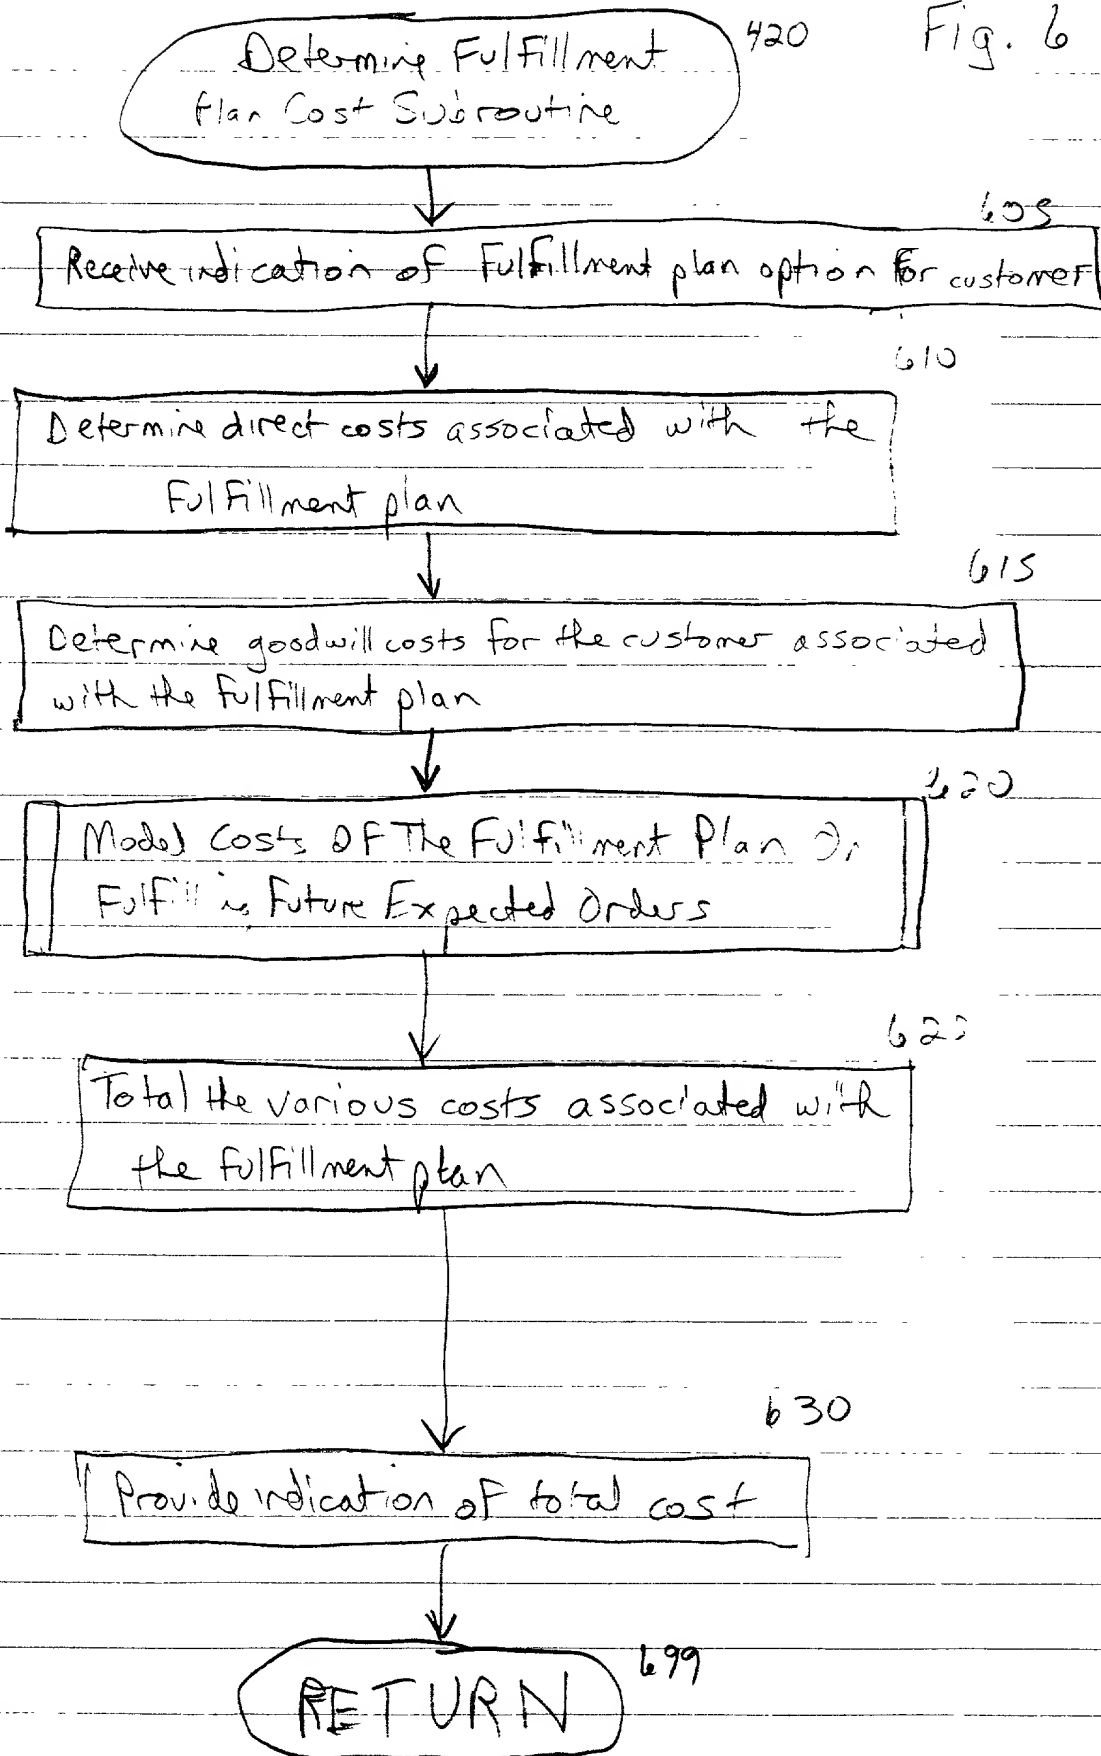 420 Fig. 6
Determine Fulfillment
Plan Cost Subroutine
605
Receive indication of Fulfillment plan option for customer
610
Determine direct costs associated with the
Fulfillment plan
615
Determine goodwill costs for the customer associated
with the Fulfillment plan
620
Model Costs Of The Fulfillment Plan On
Fulfilling Future Expected Orders
625
Total the various costs associated with
the Fulfillment plan
630
Provide indication of total cost
699
RETURN